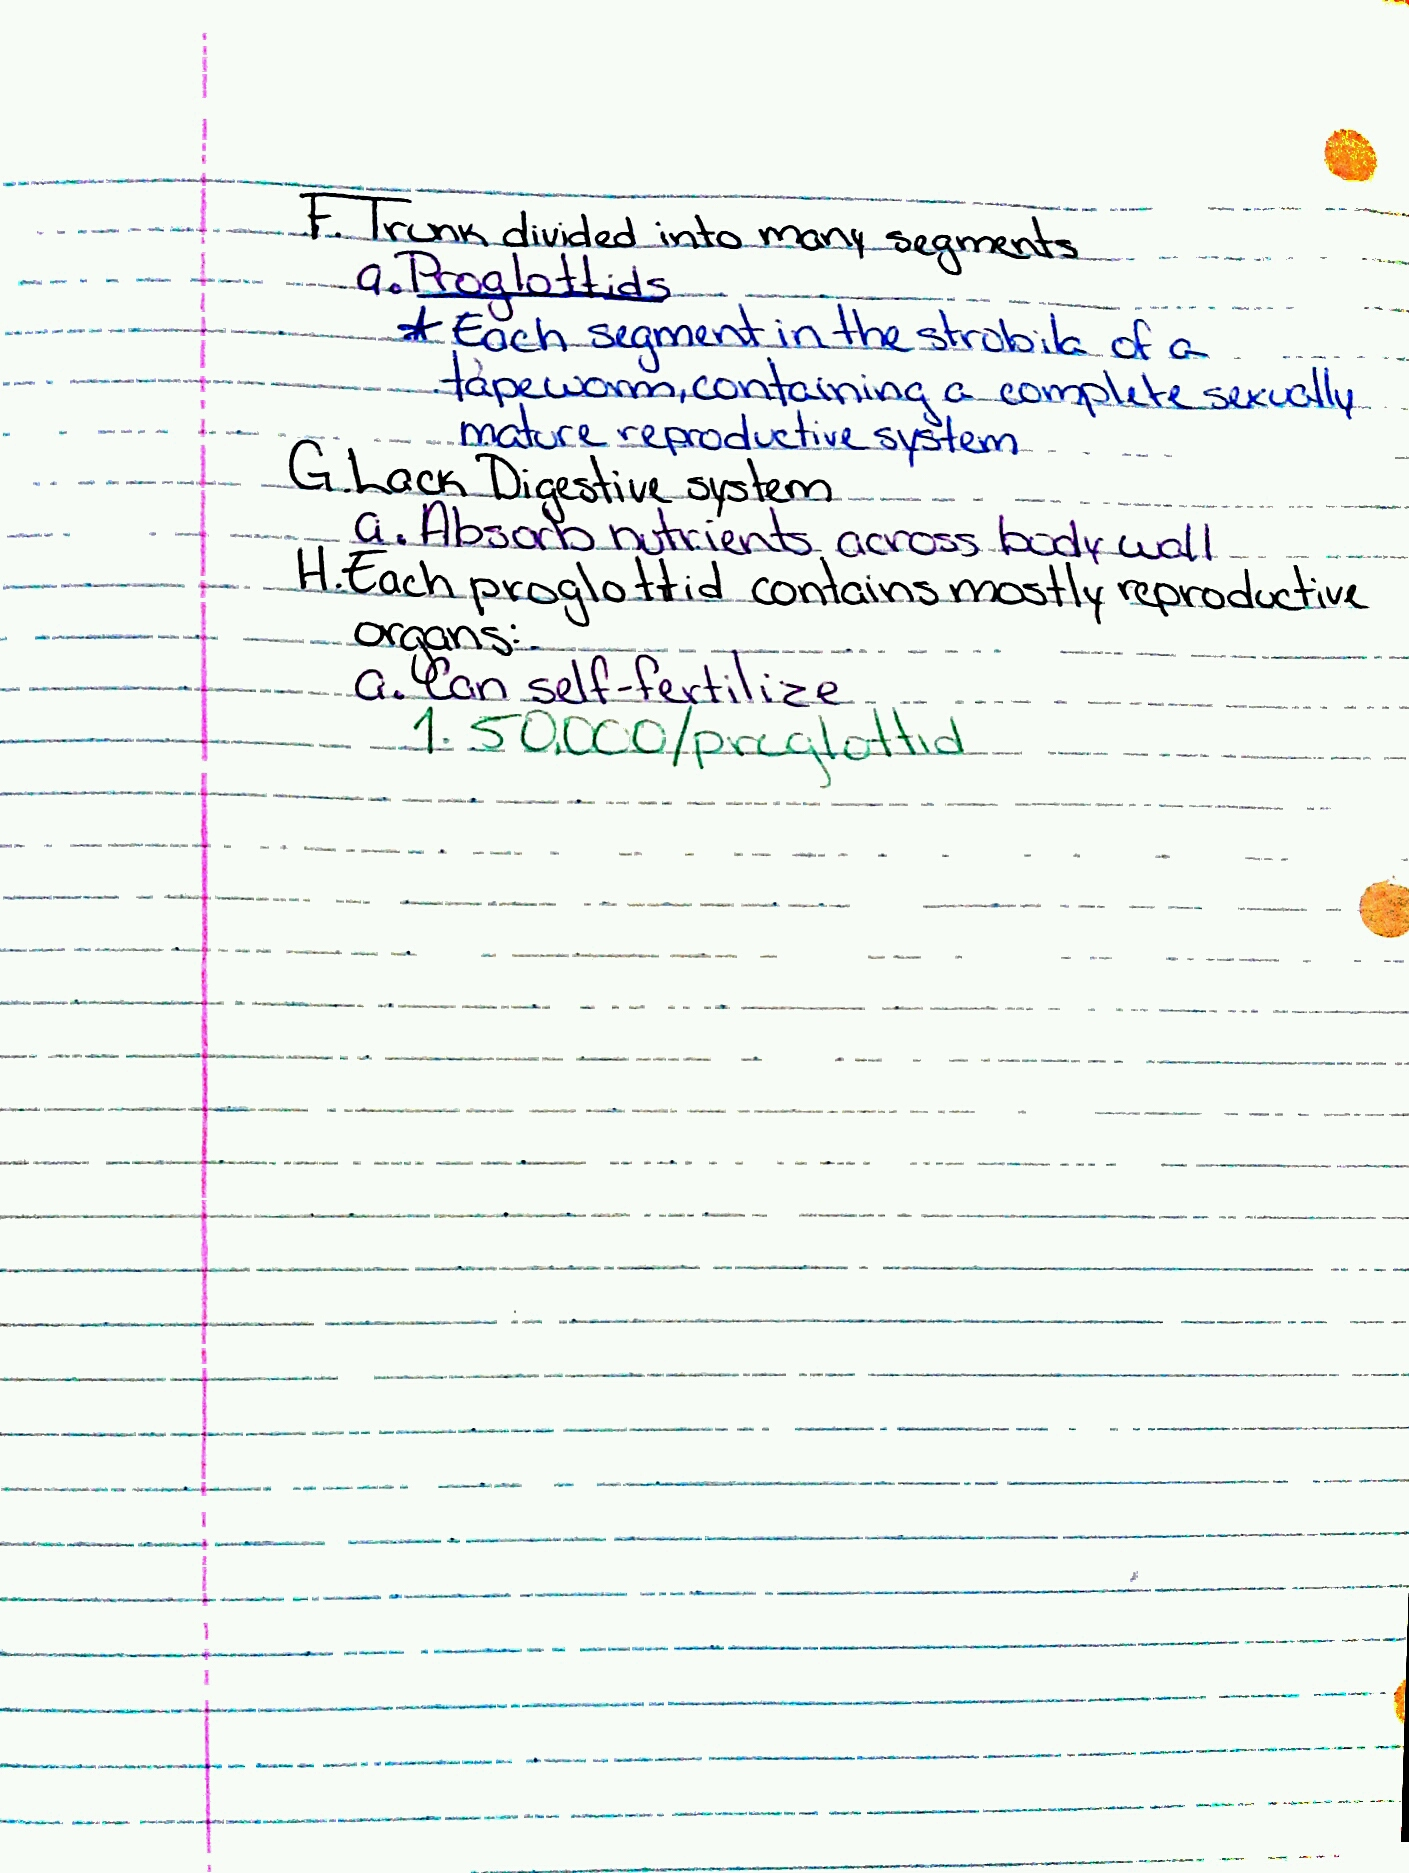 F. Trunk divided into many segments
a. Proglottids
* Each segment in the strobila of a
tapeworm, containing a complete sexually
mature reproductive system
G. Lack Digestive system
a. Absorb nutrients across body wall
H. Each proglottid contains mostly reproductive
organs:
a. Can self-fertilize
1. 50,000/proglottid